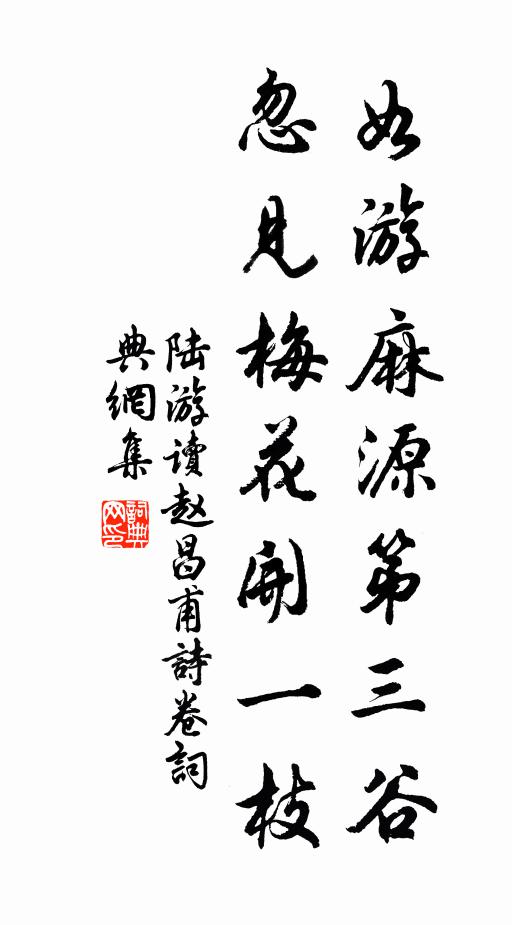 如游麻源第三谷
忽見梅花開一枝
陆游讀赵昌甫詩卷詞
典網集
詞典
网印